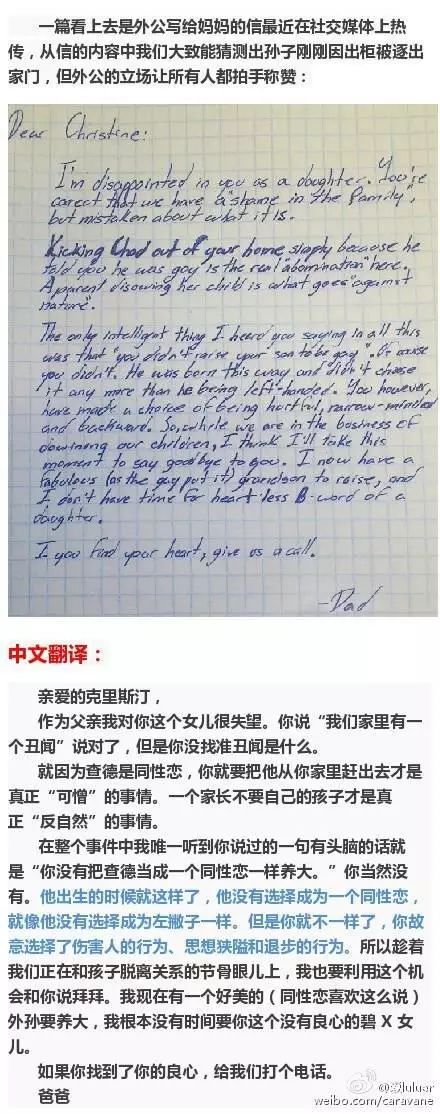 一篇看上去是外公写给妈妈的信最近在社交媒体上热
传，从信的内容中我们大致能猜测出孙子刚刚因出柜被逐出
家门，但外公的立场让所有人都拍手称赞：
Dear Christine:
I'm disappointed in you as a daughter. You're
correct that we have a "shame in the family",
but mistaken about what it is.
Kicking Chad out of your home simply because he
told you he was gay is the real "abomination" here.
A parent disowing her child is what goes "against
nature".
The only intelligent thing I heard you saying in all this
was that "you didn't raise your son to be gay". Of course
you didn't. He was born this way and didn't choose
it any more than he being left-handed. You however,
have made a choice of being hurtful, narrow-minded
and backward. So, while we are in the business of
disowning our children, I think I'll take this
moment to say goodbye to you. I now have a
fabulous (as the gay put it) grandson to raise, and
I don't have time for heart-less B-word of a
daughter.
If you find your heart, give us a call.
-Dad
中文翻译：
亲爱的克里斯汀，
作为父亲我对你这个女儿很失望。你说“我们家里有一
个丑闻”说对了，但是你没找准丑闻是什么。
就因为查德是同性恋，你就要把他从你家里赶出去才是
真正“可憎”的事情。一个家长不要自己的孩子才是真
正“反自然”的事情。
在整个事件中我唯一听到你说过的一句有头脑的话就
是“你没有把查德当成一个同性恋一样养大。”你当然没
有。他出生的时候就这样了，他没有选择成为一个同性恋，
就像他没有选择成为左撇子一样。但是你就不一样了，你故
意选择了伤害人的行为、思想狭隘和退步的行为。所以趁着
我们正在和孩子脱离关系的节骨眼儿上，我也要利用这个机
会和你说拜拜。我现在有一个好美的（同性恋喜欢这么说）
外孙要养大，我根本没有时间要你这个没有良心的碧 X 女
儿。
如果你找到了你的良心，给我们打个电话。
爸爸
weibo.com/caravane